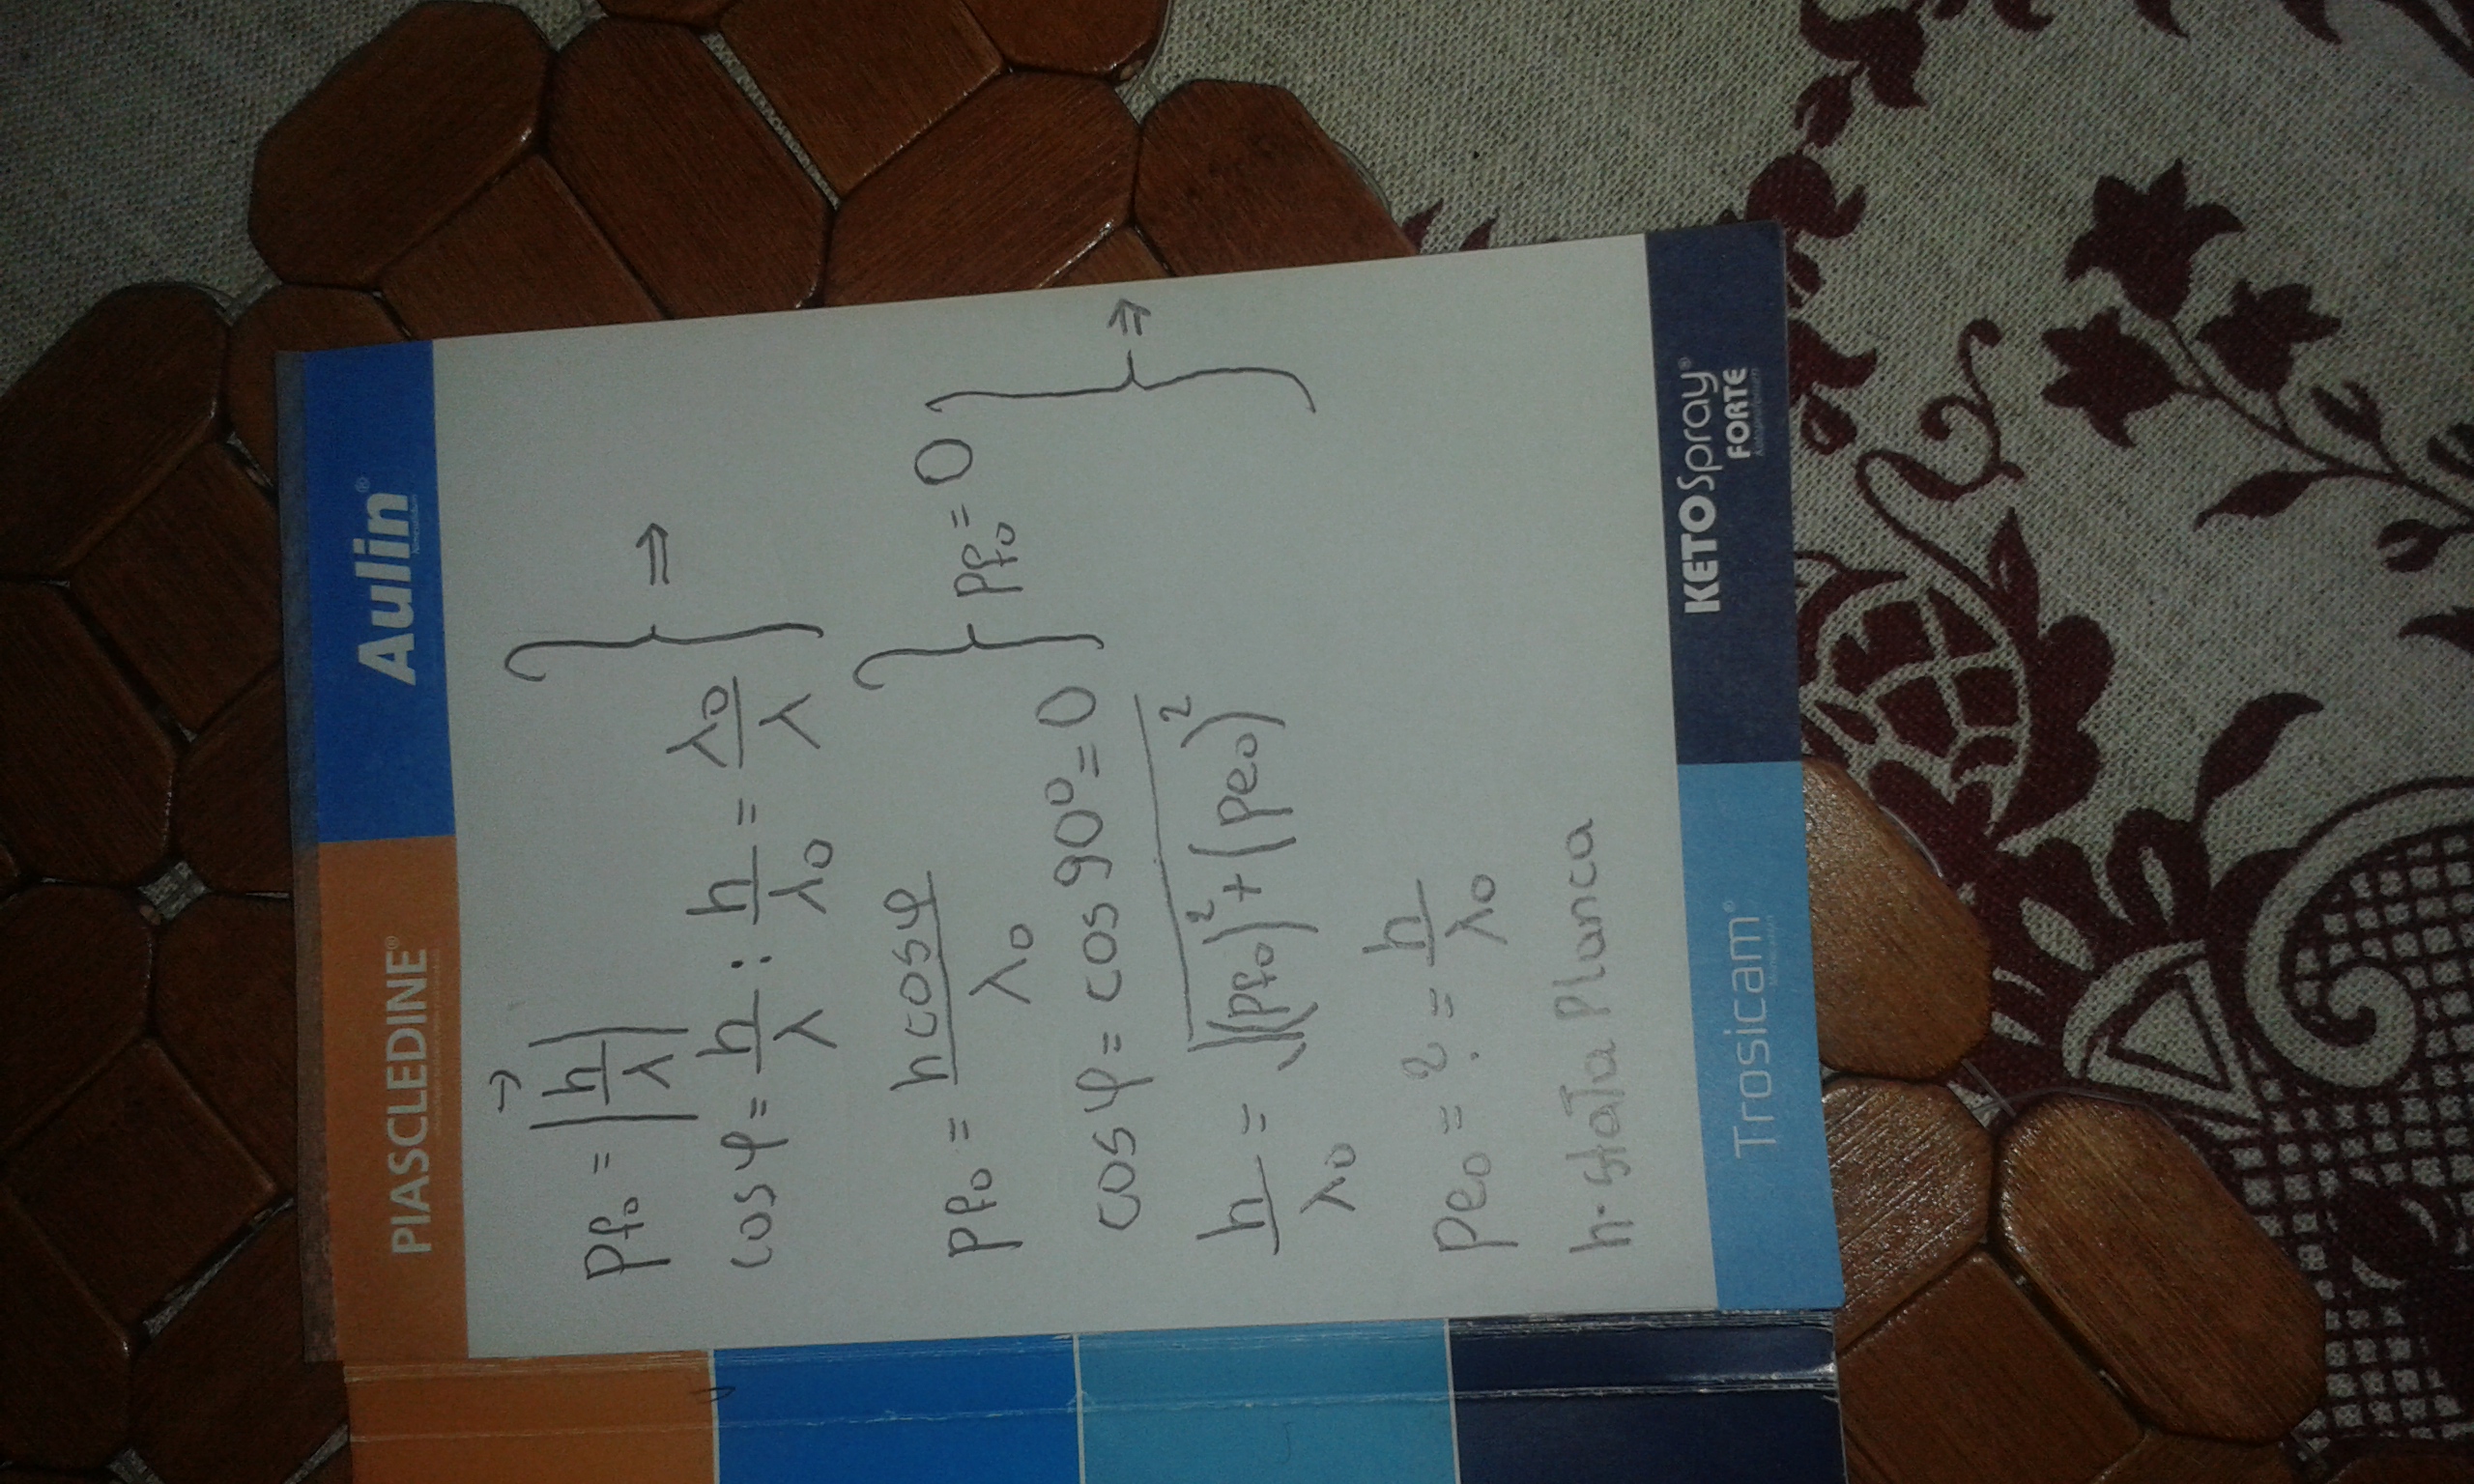 PIASCLEDINE® Aulin®
Pf₀ = |h/λ|→ } ⇒
cosφ = h/λ : h/λ₀ = λ₀/λ
Pf₀ = hcosφ/λ₀ } Pf₀ = 0 } ⇒
cosφ = cos90° = 0
h/λ₀ = √((Pf₀)² + (Pe₀)²)
Pe₀ = ? = h/λ₀
h - stała Planca
Trosicam® KETOSpray®
FORTE